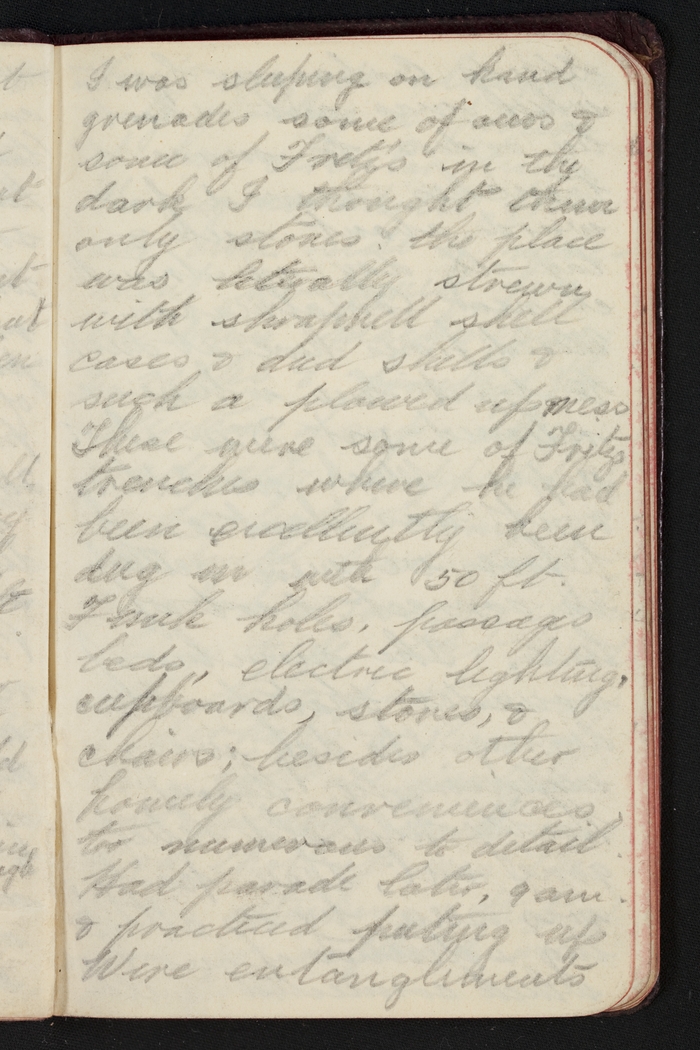 I was sleeping on hand
grenades some of ours &
some of Fritz's in the
dark I thought them
only stones. the place
was literally strewn
with shrapnell shell
cases & dud shells &
such a plowed up mess
These were some of Fritz's
trenches where he had
been excellently been
dug in with 50 ft.
Funk holes, passages
beds, electric lighting,
cupboards, stoves, &
chairs; besides other
homely conveniences,
to numerous to detail.
Had parade later, 9 am.
& practiced puting up
Wire entanglements